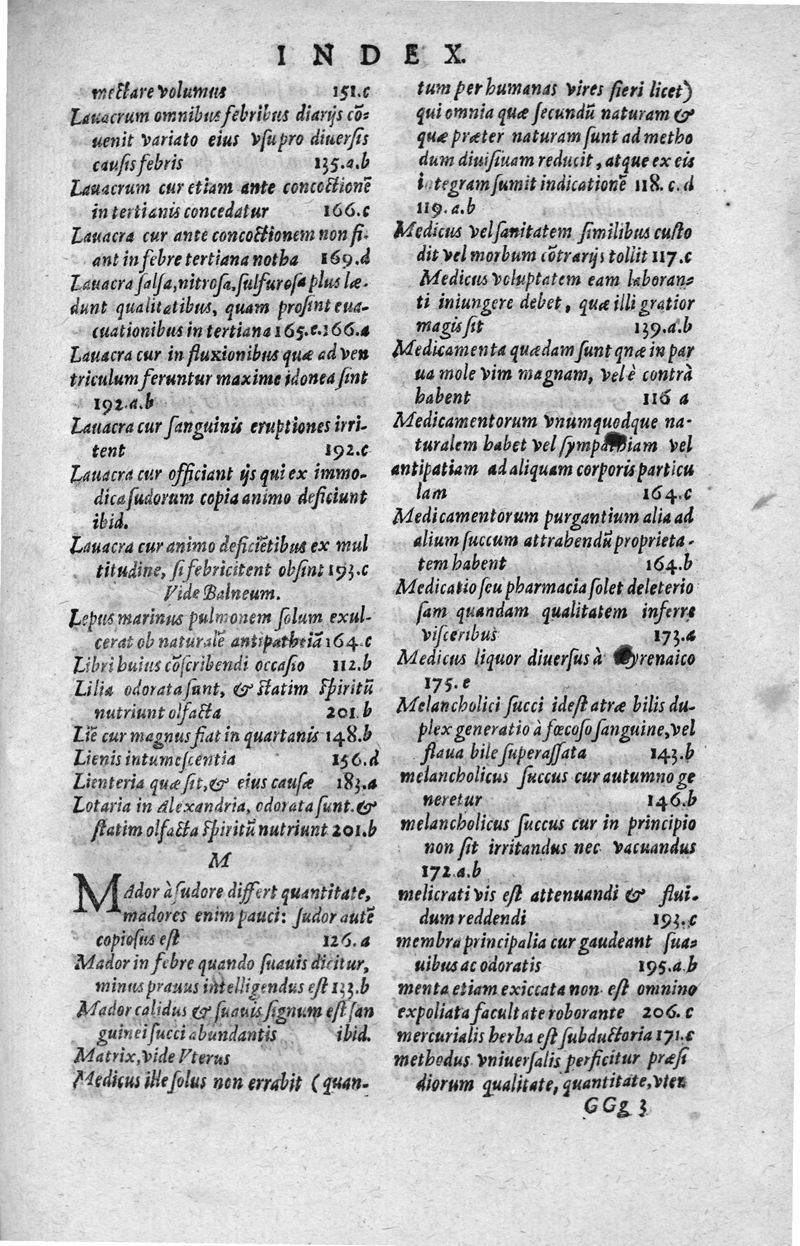 INDEX.
mectare volumus 151.c
Lauacrum omnibus febribus diarijs cō-
uenit variato eius vsu pro diuersis
causis febris 135.a.b
Lauacrum cur etiam ante concoctionē
in tertianis concedatur 166.c
Lauacra cur ante concoctionem non fi-
ant in febre tertiana notha 169.d
Lauacra salsa, nitrosa, sulfurosa plus læ-
dunt qualitatibus, quam prosint eua-
cuationibus in tertiana 165.e.166.a
Lauacra cur in fluxionibus quæ ad ven
triculum feruntur maxime idonea sint
192.a.b
Lauacra cur sanguinis eruptiones irri-
tent 192.c
Lauacra cur officiant ijs qui ex immo-
dica sudorum copia animo deficiunt
ibid.
Lauacra cur animo deficiētibus ex mul
titudine, si febricitent obsint 193.c
Vide Balneum.
Lepus marinus pulmonem solum exul-
cerat ob naturalē antipathiā 164.c
Libri huius cōscribendi occasio 112.b
Lilia odorata sunt, & statim spiritū
nutriunt olfacta 201.b
Liē cur magnus fiat in quartanis 148.b
Lienis intumescentia 156.d
Lienteria quæ sit, & eius causæ 183.a
Lotaria in Alexandria, odorata sunt. &
statim olfacta spiritū nutriunt 201.b
M
MAdor à sudore differt quantitate,
madores enim pauci: sudor autē
copiosus est 126.a
Mador in febre quando suauis dicitur,
minus prauus intelligendus est 133.b
Mador calidus & suauis signum est san
guinei succi abundantis ibid.
Matrix, vide Vterus
Medicus ille solus non errabit (quan-
tum per humanas vires fieri licet)
qui omnia quæ secundū naturam &
quæ præter naturam sunt ad metho
dum diuisiuam reducit, atque ex eis
integram sumit indicationē 118.c.d
119.a.b
Medicus vel sanitatem similibus custo
dit vel morbum cōtrarijs tollit 117.c
Medicus voluptatem eam laboran-
ti iniungere debet, quæ illi gratior
magis sit 139.a.b
Medicamenta quædam sunt qnæ in par
ua mole vim magnam, vel è contrà
habent 116 a
Medicamentorum vnumquodque na-
turalem habet vel sympathiam vel
antipatiam ad aliquam corporis particu
lam 164.c
Medicamentorum purgantium alia ad
alium succum attrahendū proprieta-
tem habent 164.b
Medicatio seu pharmacia solet deleterio
sam quandam qualitatem inferre
visceribus 173.a
Medicus liquor diuersus à yrenaico
175.e
Melancholici succi idest atræ bilis du-
plex generatio à fœcoso sanguine, vel
flaua bile superassata 143.b
melancholicus succus cur autumno ge
neretur 146.b
melancholicus succus cur in principio
non sit irritandus nec vacuandus
172.a.b
melicrati vis est attenuandi & flui-
dum reddendi 193.c
membra principalia cur gaudeant sua-
uibus ac odoratis 195.a.b
menta etiam exiccata non est omnino
expoliata facultate roborante 206.c
mercurialis herba est subductoria 171.c
methodus vniuersalis perficitur præsi
diorum qualitate, quantitate, vten
GGg 3